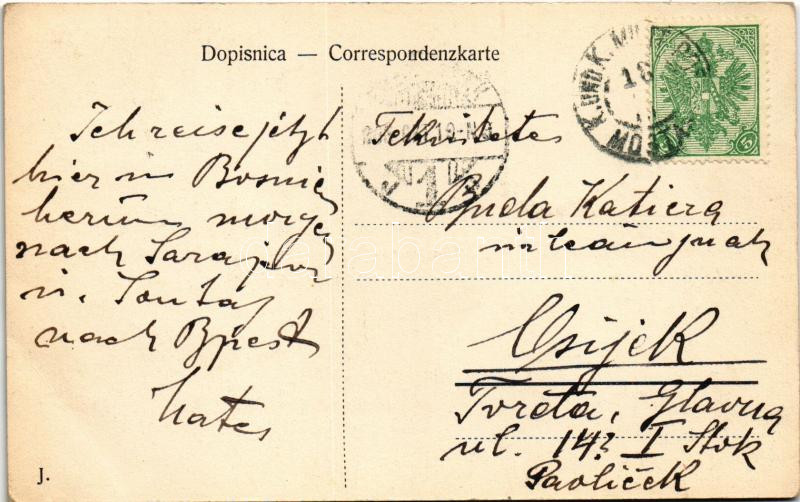 Dopisnica — Correspondenzkarte
Ich reise jetzt
hier in Bosnien
herum morgen
nach Sarajevo
u. Sontag
nach Bpest
Mates
J.
K. UND K. MILIT. POST
18
1
Tekintetes
Buda Katicza
urleánynak
Osijek
Tvrđa, Glavna
ul. 143 I Stok
Pavliček
5